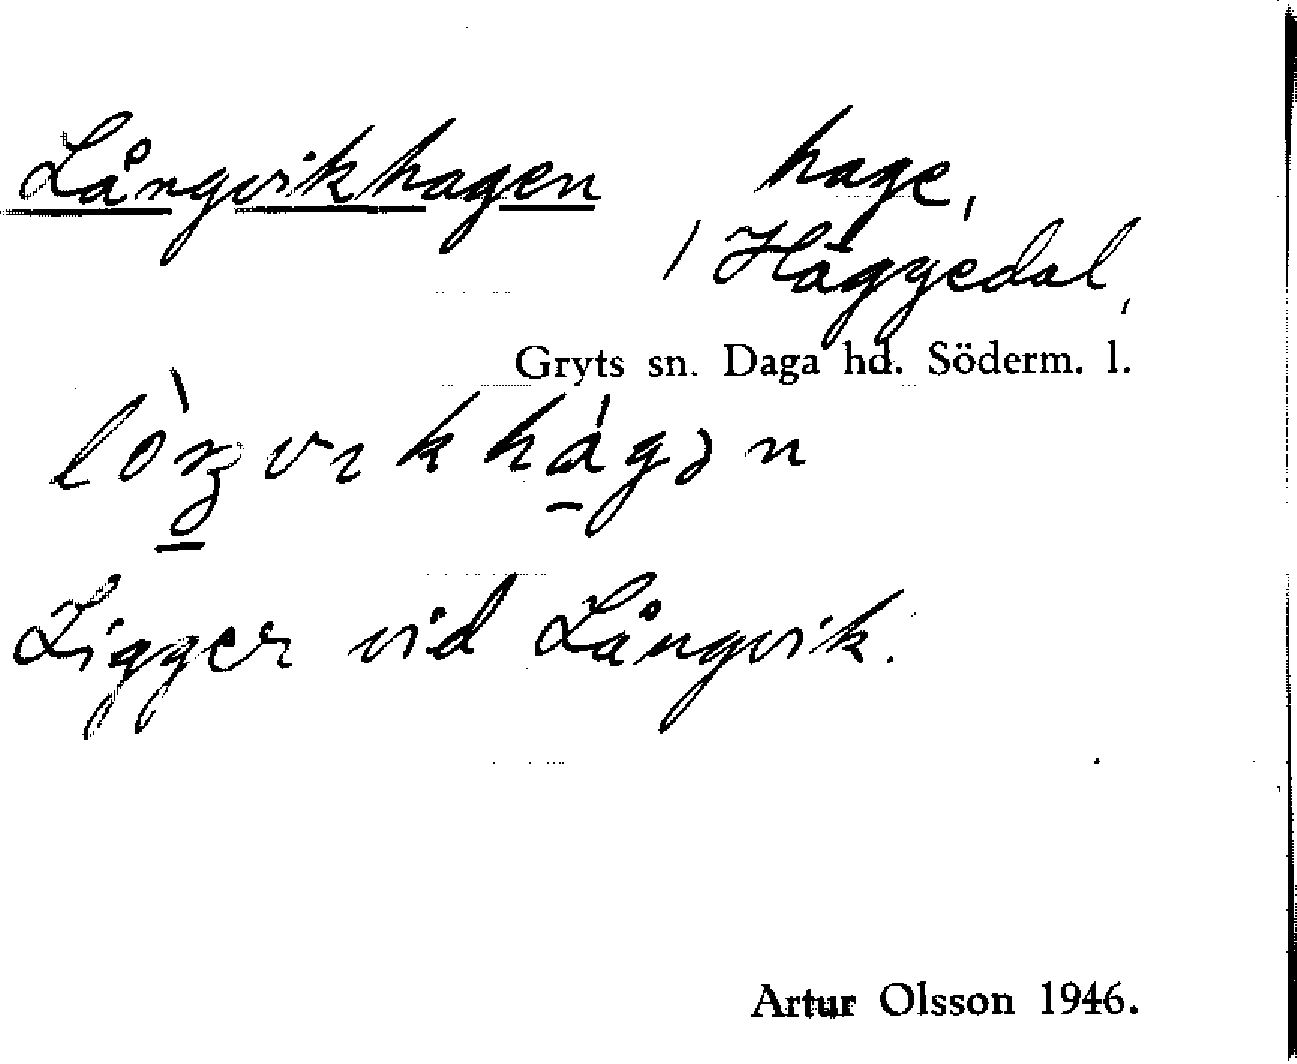 Långvikhagen hage,
/ Häggedal,
Gryts sn. Daga hd. Söderm. l.
Ligger vid Långvik.
Artur Olsson 1946.